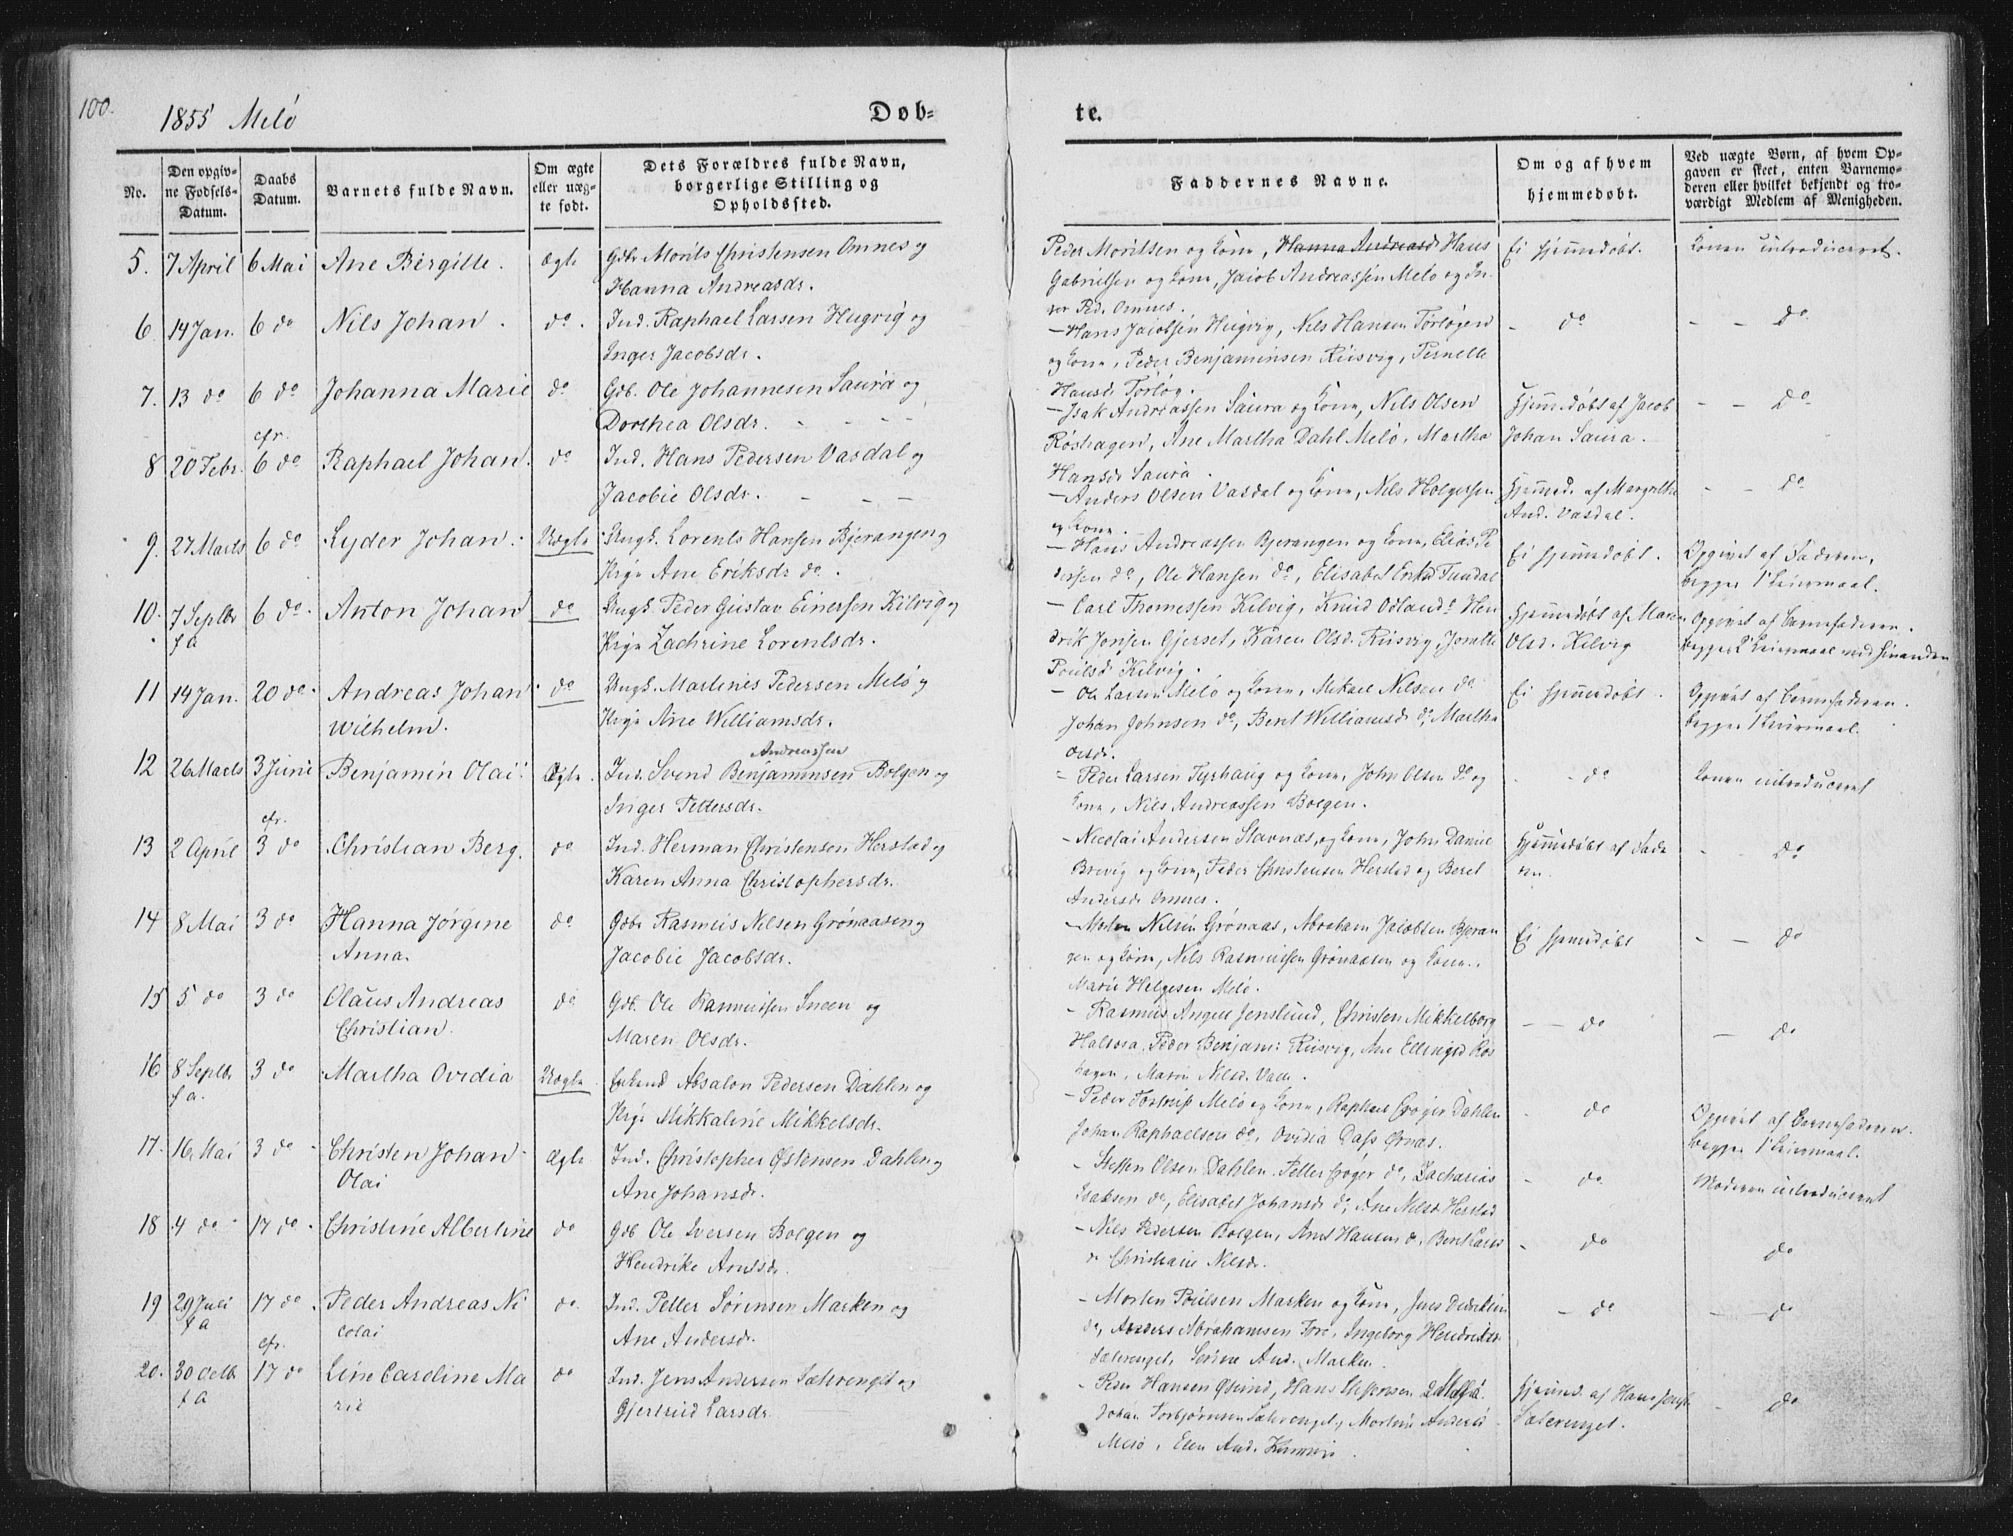 100.
1855 Melö
Døb-
te.
No.
Den opgiv-
ne Fødsels-
Datum.
Daabs
Datum.
Barnets fulde Navn.
Om ægte
eller uæg-
te født.
Dets Forældres fulde Navn,
borgerlige Stilling og
Opholdssted.
Faddernes Navne.
Om og af hvem
hjemmedøbt.
Ved uægte Børn, af hvem Op-
gaven er skeet, enten Barnemo-
deren eller hvilket bekjendt og tro-
værdigt Medlem af Menigheden.
5. 7 April 6 Mai Ane Birgitte. Ægte Gdbr Morits Christensen Omnes og
Hanna Andreasdr.
Peder Moritsen og Kone, Hanna Andreasdr Hans
Gabrielsen og Kone, Jacob Andreassen Melö og
Ped. Omnes.
Ei hjemmedøbt.
Konen introduceret.
6 14 Jan. 6 do Nils Johan. do. Ind. Raphael Larsen Hugvig og
Inger Jacobsdr.
- Hans Jacobsen Hugvig, Nils Hansen Torlögen
og Kone, Peder Benjaminsen Riisvig, Pernelle
Hansd. Torlög.
- do
- - do
7. 13 do 6 do Johanna Marie do Gdb. Ole Johannesen Saura og
Dorthea Olsdr. - - -
- Isak Andreassen Saura og Kone, Nils Olsen
Röshagen, Ane Martha Dahl Melö, Martha
Hansdr Saura.
Hjemmedøbt af Jacob
Johan Saura.
- - do
cfr.
8 20 Febr. 6 do Raphael Johan. do Ind. Hans Pedersen Vasdal og
Jacobie Olsdr. - - -
- Anders Olsen Vasdal og Kone, Nils Holgersen
og Kone.
Hjemmed. af Margrethe
And. Vasdal.
- - do
9. 27 Marts 6 do Lyder Johan. Uægte Ungk. Lorents Hansen Bjerangen og
Pige Ane Eriksdr do.
- Hans Andreassen Bjerangen og Kone, Elias Pe
dersen do, Ole Hansen do, Elisabet Eriksd Tundal
Ei hjemmedøbt.
Opgivet af Faderen,
begges 1ste Leiermaal.
10. 7 Septbr 6 do. Anton Johan do Ungk. Peder Gustav Einersen Kilvig og
f a
Pige Zachrine Lorentsdr.
- Carl Thomessen Kilvig, Knud Odland do Hen
drik Jonsen Gjerset, Karen Olsd. Riisvig,
Poulsd Kilvig.
Hjemmedøbt af Maren
Olsd. Kilvig
Opgivet af Barnefaderen.
begges 2det Leiermaal med hinanden
11 14 Jan. 20 do. Andreas Johan do Ungk. Martines Pedersen Melö og
Wilhelm.
Pige Ane Williamsdr.
- Ole Larsen Melö og Kone, Mikael Nilsen do
Johan Johnsen do, Berit Williamsdr do, Martha
Olsdr.
Ei hjemmedøbt.
Opgivet af Barnefaderen.
begges 1ste Leiermaal.
12 26 Marts 3 Juni Benjamin Olai. Ægte. Ind. Svend Benjaminsen Bolgen og
Andreassen
Inger Pettersdr.
- Peder Larsen Tyrhaug og Kone, John Olsen do og
Kone, Nils Andreassen Bolgen.
- - do
Konen introduceret
cfr.
13 2 April 3 do Christian Berg. do Ind. Herman Christensen Herstad og
Karen Anna Christophersdr.
- Nicolai Andersen Stavnæs, og Kone, John Danie
Brevig og Kone, Peder Christensen Herstad og Beret
Andersdr Omnes.
Hjemmedøbt af Fade
ren.
- - do
14 8 Mai 3 do Hanna Jörgine do Gdbr Rasmus Nilsen Grönaasen og
Anna.
Jacobie Jacobsdr.
- Morten Nilsen Grönaas, Abraham Jacobsen Bjeran
gen og Kone, Nils Rasmussen Grönaasen og Kone.
Marie Helgesen Melö.
Ei hjemmedøbt
- - do
15 5 do 3 do Olaus Andreas do Gdb. Ole Rasmussen Sneen og
Christian.
Maren Olsdr.
- Rasmus Angell Jenslund, Christen Mikkelborg
Halsosa. Peder Benjam: Riisvig, Ane Ellingsd Rös
hagen, Maren Nilsd.
- - do
- do
16 8 Septbr 3 do Martha Ovidia Uægte. Enkemd Absalon Pedersen Dahlen og
f a.
Pige Mikkaline Mikkelsdr.
- Peder Tostrup Melö og Kone, Raphael Crøger Dahlen
Johan Raphaelsen do, Ovidia Dass Ørnæs.
- do
Opgivet af Barnefaderen.
begges 1ste Leiermaal.
17. 16 Mai 3 do Christen Johan Ægte Ind. Christopher Östensen Dahlen og
Olai
Ane Johansdr.
- Steffen Olsen Dahlen. Petter Crøger do, Zacharias
Isaksen do, Elisabet Johansdr do, Ane Nilsd Herstad
- do
Moderen introduceret
18 4 do 17 do. Christine Albertine do Gdb Ole Iversen Bolgen og
Hendrike Arntsdr.
- Nils Pedersen Bolgen, Arnt Hansen do,
Christiane Nilsdr.
- do
do
19 29 Juli 17 do. Peder Andreas Ni do. Ind. Petter Sørensen Marken og
f a
colai
Ane Andersdr.
- Morten Poulsen Marken og Kone, Jens Didriksen
do, Anders Abrahamsen Fore, Ingeborg Hendriksdr
Sæterenget, Sørine And. Marken.
- do
- - do
cfr.
20. 30 Octb 17 do Line Caroline Ma do Ind. Jens Andersen Sæterenget og
f a
rie
Gjertrud Larsdr.
- Peder Hansen Øsund, Hans
Johan Torbjörnsen Sæterenget, Mortine Andersd.
Melö, Elen And.
Hjemmed. af Hans
Sæterenget.
- do